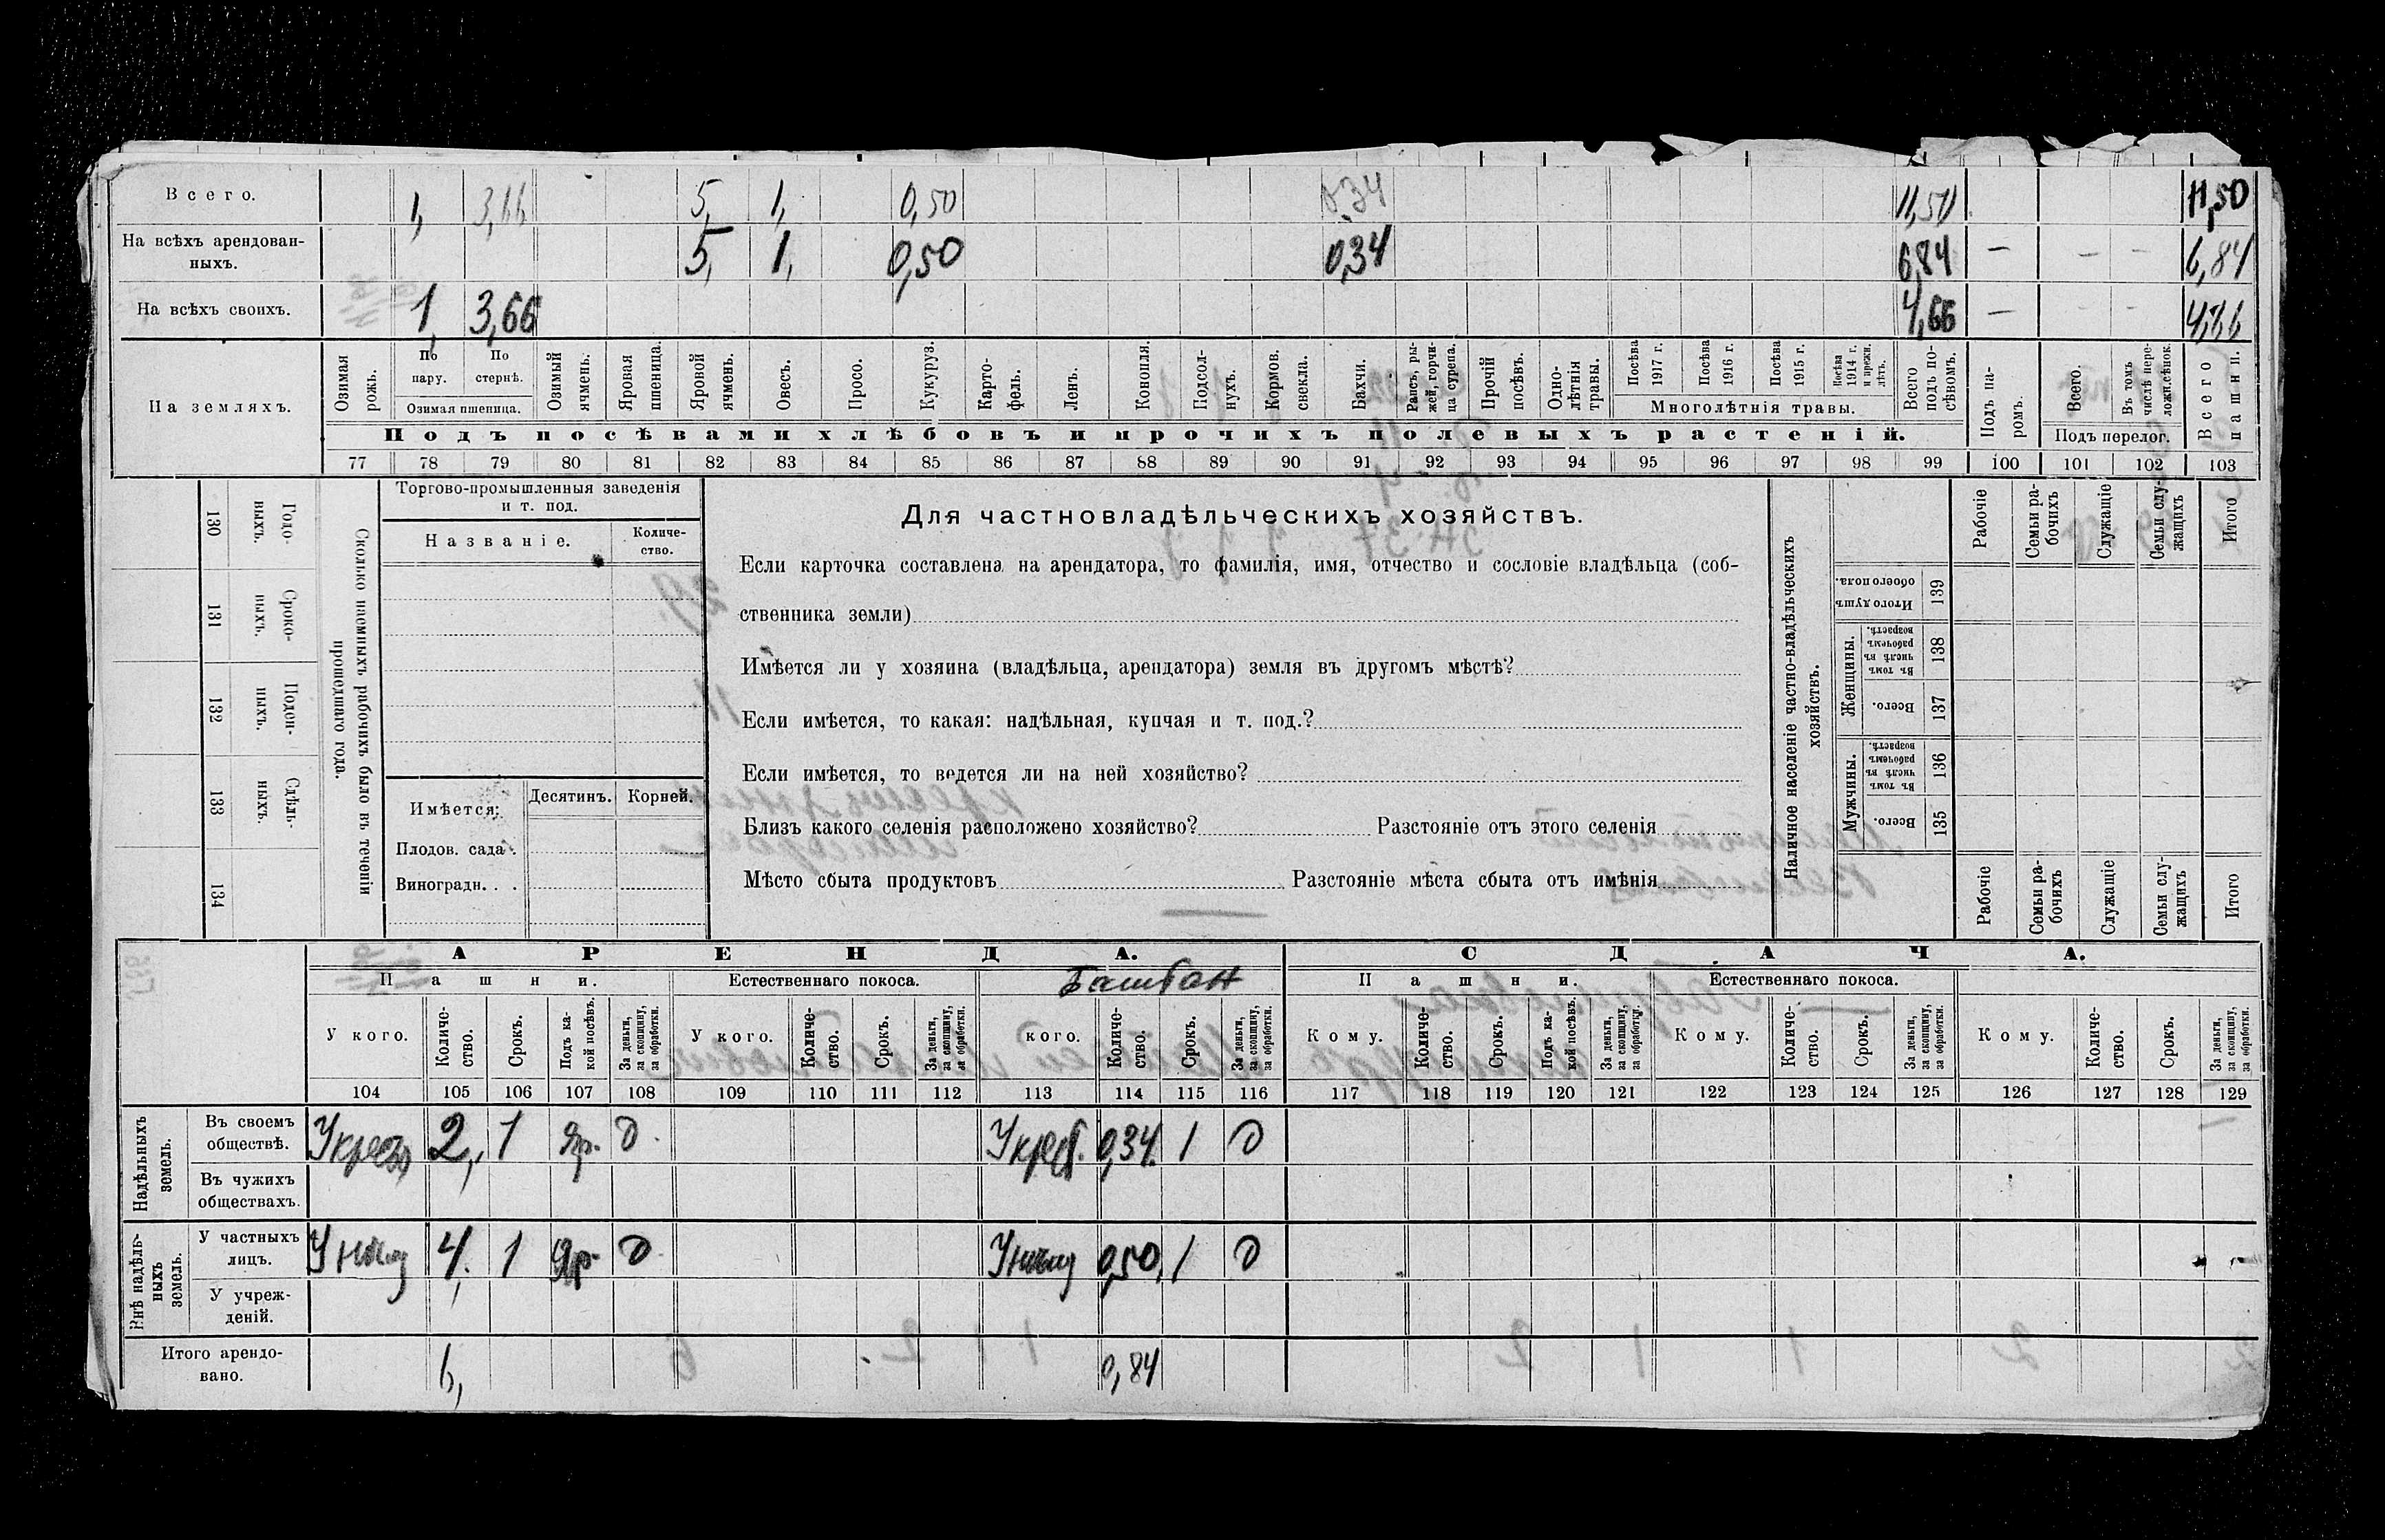 Всего. 1, 3,66 5, 1, 0,50 0,34 11,50 11,50
На всѣхъ арендован-
ныхъ. 5, 1, 0,50 0,34 6,84 — — — 6,84
На всѣхъ своихъ. 1, 3,66 4,66 — — — 4,66
На земляхъ.
Озимая рожь.
По пару.
По стернѣ.
Озимая пшеница.
Озимый ячмень.
Яровая пшеница.
Яровой ячмень.
Овесъ.
Просо.
Кукуруз.
Карто-
фель.
Ленъ.
Конопля.
Подсол-
нухъ.
Кормов. свекла.
Бахчи.
Рапсъ, ры-
жей, горчи-
ца сурепа.
Прочій посѣвъ.
Одно-
лѣтнія травы.
Посѣва 1917 г.
Посѣва 1916 г.
Посѣва 1915 г.
Посѣва 1914 г. и прежн. лѣтъ.
Многолѣтнія травы.
Всего подъ по-
сѣвомъ.
Подъ па-
ромъ.
Всего.
Въ томъ числѣ пере-
лож.сѣнок.
Подъ перелог.
Всего пашни.
Подъ посѣвами хлѣбовъ и прочихъ полевыхъ растеній.
77 78 79 80 81 82 83 84 85 86 87 88 89 90 91 92 93 94 95 96 97 98 99 100 101 102 103
130 Годо-
ныхъ.
131 Сроко-
ныхъ.
132 Подон-
ныхъ.
133 Сдѣль-
ныхъ.
134
Сколько наемныхъ рабочихъ было въ теченіи
прошедшаго года.
Торгово-промышленныя заведенія
и т. под.
Названіе.
Количе-
ство.
Имѣется:
Десятинъ. Корней.
Плодов. сада .
Виноградн. . .
Для частновладѣльческихъ хозяйствъ.
Если карточка составлена на арендатора, то фамилія, имя, отчество и сословіе владѣльца (соб-
ственника земли)
Имѣется ли у хозяина (владѣльца, арендатора) земля въ другомъ мѣстѣ?
Если имѣется, то какая: надѣльная, купчая и т. под.?
Если имѣется, то ведется ли на ней хозяйство?
Близъ какого селенія расположено хозяйство? Разстояніе отъ этого селенія
Мѣсто сбыта продуктовъ Разстояніе мѣста сбыта отъ имѣнія
Наличное населеніе частно-владѣльческихъ
хозяйствъ.
Рабочіе
Семьи ра-
бочихъ
Служащіе
Семьи слу-
жащихъ
Итого
Итого душъ обоего пола. 139
Женщины.
Въ томъ числѣ въ рабочемъ возрастѣ. 138
Всего. 137
Мужчины.
Въ томъ числѣ въ рабочемъ возрастѣ. 136
Всего. 135
Рабочіе
Семьи ра-
бочихъ
Служащіе
Семьи слу-
жащихъ
Итого
АРЕНДА. СДАЧА.
Пашни. Естественнаго покоса. Баштан Пашни. Естественнаго покоса.
У кого. Количе-
ство. Срокъ. Подъ ка-
кой посѣвъ. За деньги,
за скопщину,
за обработки.
У кого. Количе-
ство. Срокъ. За деньги,
за скопщину,
за обработки.
кого. Количе-
ство. Срокъ. За деньги,
за скопщину,
за обработки.
Кому. Количе-
ство. Срокъ. Подъ ка-
кой посѣвъ. За деньги,
за скопщину,
за обработки.
Кому. Количе-
ство. Срокъ. За деньги,
за скопщину,
за обработки.
Кому. Количе-
ство. Срокъ. За деньги,
за скопщину,
за обработки.
104 105 106 107 108 109 110 111 112 113 114 115 116 117 118 119 120 121 122 123 124 125 126 127 128 129
Надѣльныхъ
земель.
Въ своемъ
обществѣ. У крест 2, 1 Яр. д. У крест. 0,34 1 д
Въ чужихъ
обществахъ.
Внѣ надѣль-
ныхъ
земель.
У частныхъ
лицъ. 4, 1 Яр. д. 0,50, 1 д
У учреж-
деній.
Итого арендо-
вано. 6, 0,84